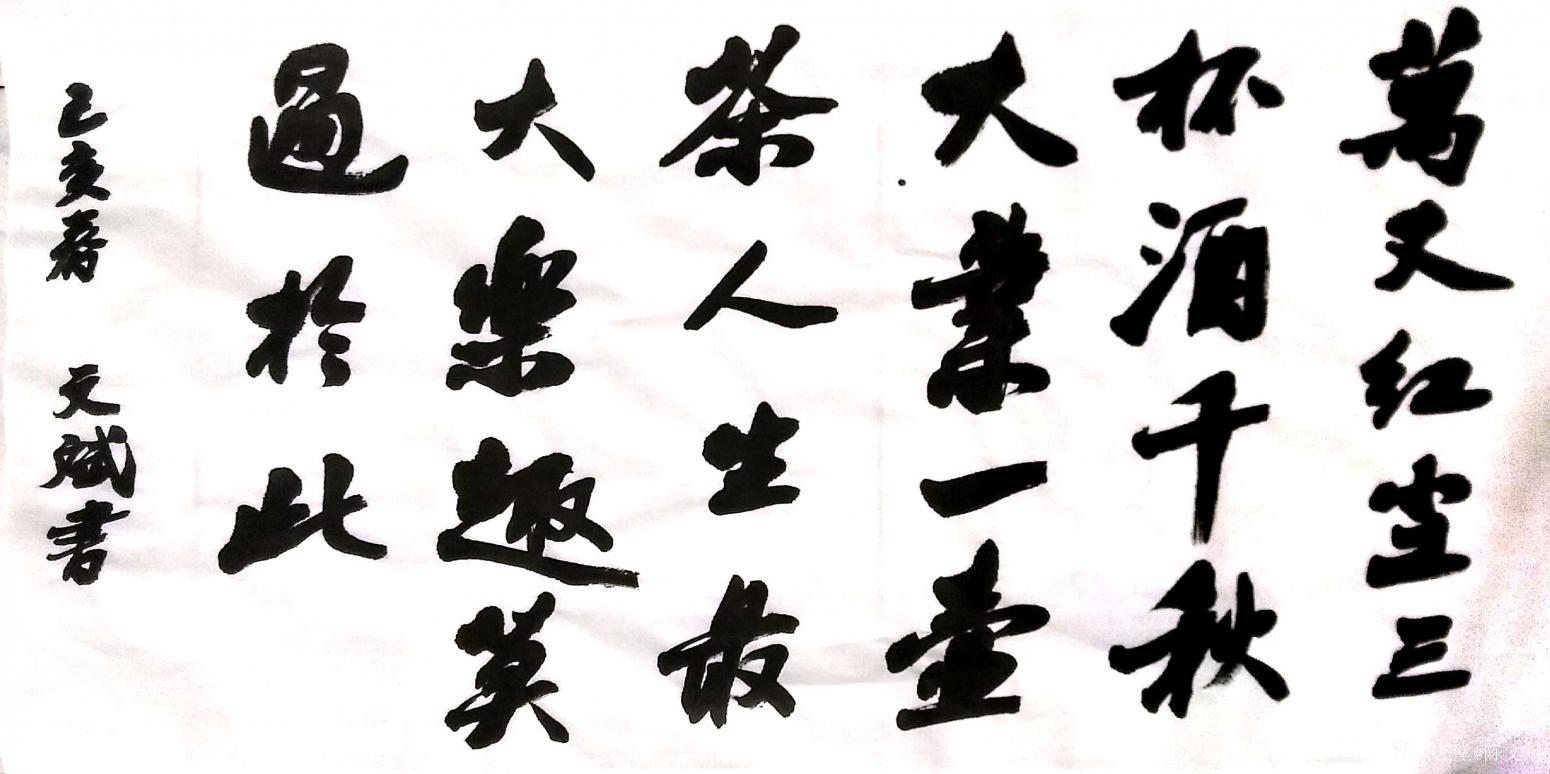 萬丈红尘三
杯酒千秋
大業一壶
茶人生最
大樂趣莫
過於此
己亥春 文斌书